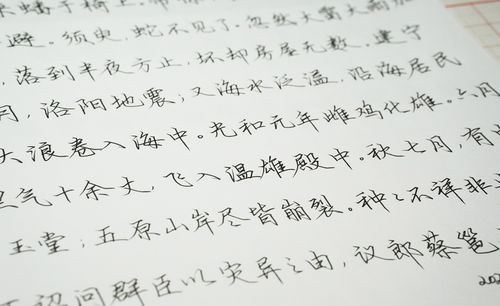 蟠于椅上。帝
避。须臾，蛇不见了。忽然大雷大雨加
，落到半夜方止，坏却房屋无数。建宁
月，洛阳地震；又海水泛溢，沿海居民
大浪卷入海中。光和元年雌鸡化雄。六月
黑气十余丈，飞入温雄殿中。秋七月，有
玉堂；五原山岸尽皆崩裂。种种不祥非
诏问群臣以灾异之由，议郎蔡邕
202